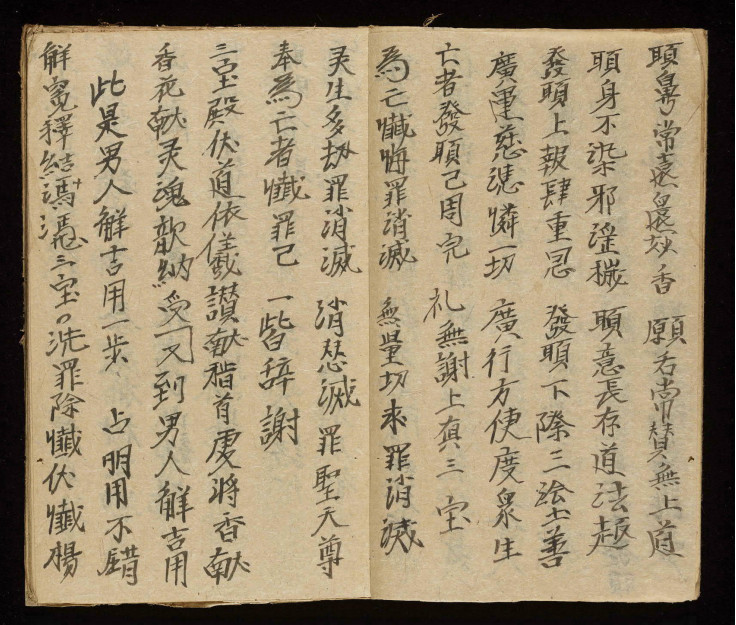 願鼻常嗅衆妙香 願舌常贊無上道
願身不染邪淫穢 願意長存道法超
發願上報肆重恩 發願下際三塗善
廣運慈悲憐一切 廣行方便度衆生
亡者發願己周完 礼無謝上真三宝
為亡懺悔罪消滅 無量切来罪消滅
灵生多劫罪消滅 消愆滅罪聖天尊
奉為亡者懺罪己 一皆辞謝
三宝殿伏道依儀讃献稽首虔将香献
香花献灵魂歆納受 又到男人觧吉用
此是男人觧吉用一步 占明用不錯
觧冤釋結馮 憑三宝〇洗罪除懺伏懺楊